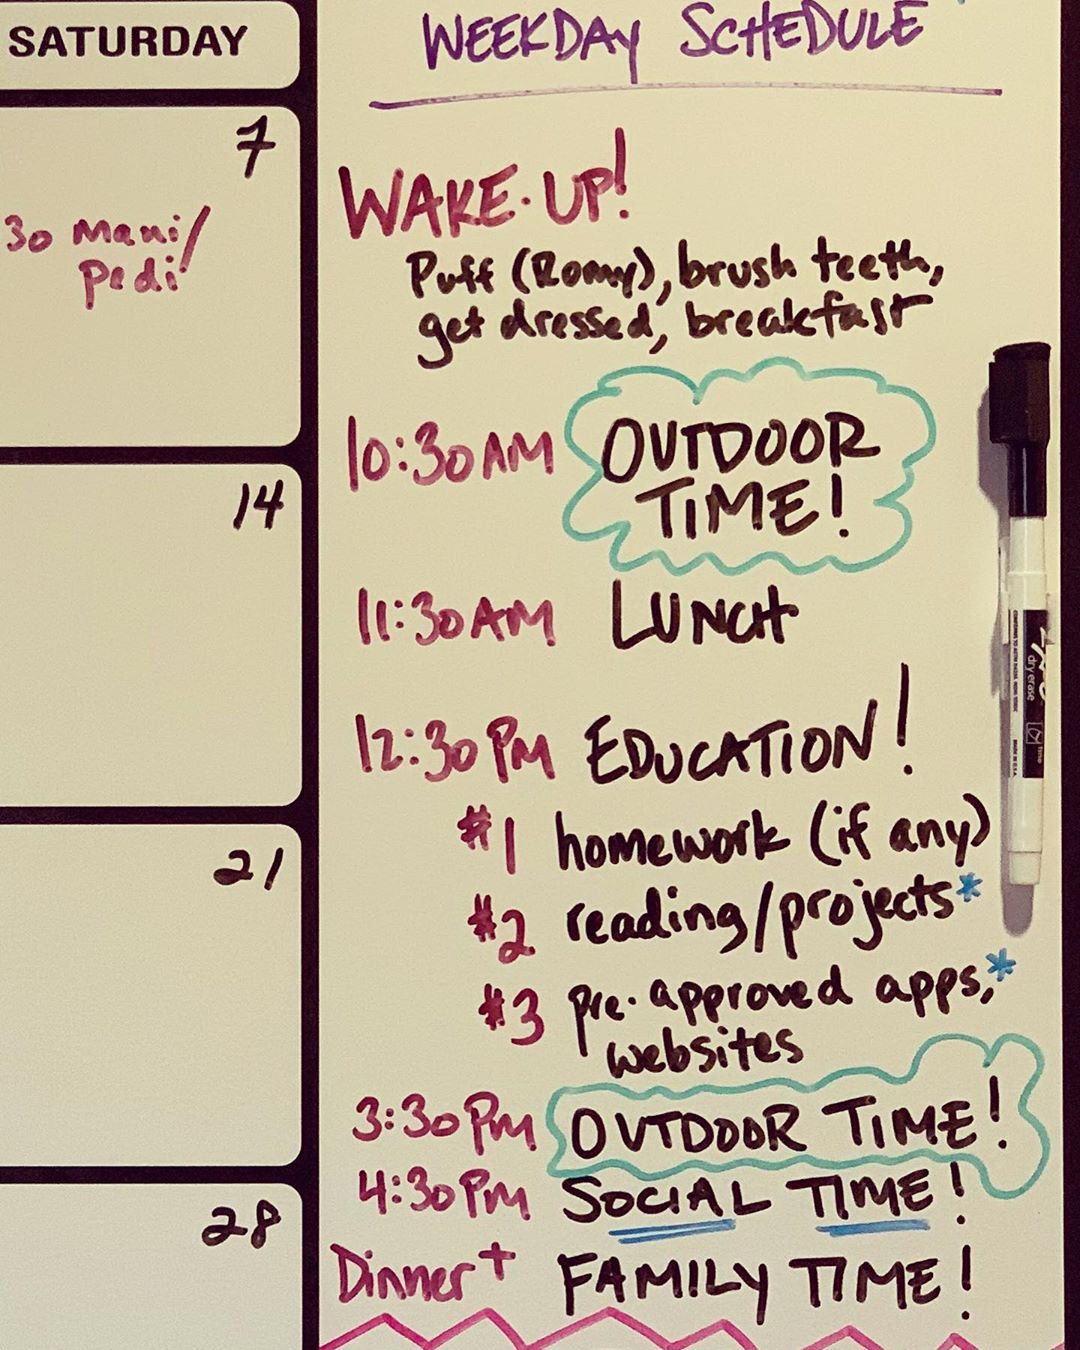 SATURDAY
7
30 Mani/
Pedi
14
21
28
WEEKDAY SCHEDULE
WAKE-UP!
Puff (Romy), brush teeth,
get dressed, breakfast
10:30AM OUTDOOR
TIME!
11:30AM LUNCH
12:30PM EDUCATION!
#1 homework (if any)
#2 reading/projects*
#3 pre-approved apps,*
websites
3:30PM OUTDOOR TIME!
4:30PM SOCIAL TIME!
Dinner+ FAMILY TIME!
dry erase